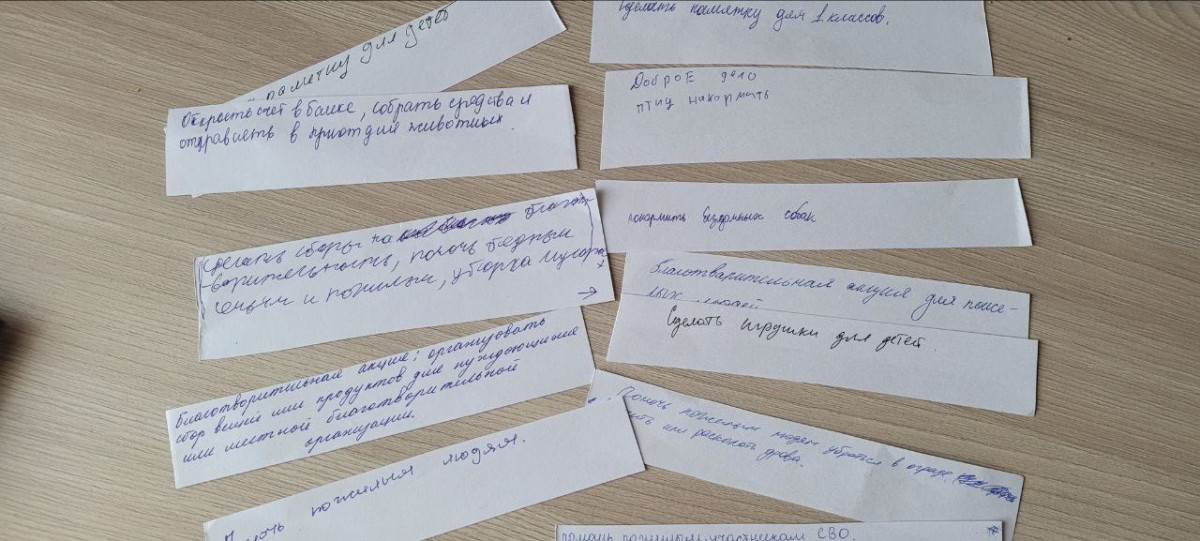 паметку для детей
Открость счёт в банке, собрать средства и
отправлять в приют для животных.
Сделать сборы на благот-
-ворительность, помочь бедным
семьям и пожилым, уборка мусора
→
Благотворительная акция: организовать
сбор вещей или продуктов для нуждающихся
или местной благотворительной
организации.
пожилым людям.
Сделать памятку для 1 классов.
ДоброЕ дело
птиц накормить
покормить бездомных собак
Благотворительная акция для пожи-
лых людей
Сделать игрушки для детей
Помочь пожилым людям убраться в ограде
или расколоть дрова.
помощь пожилым, участникам СВО.